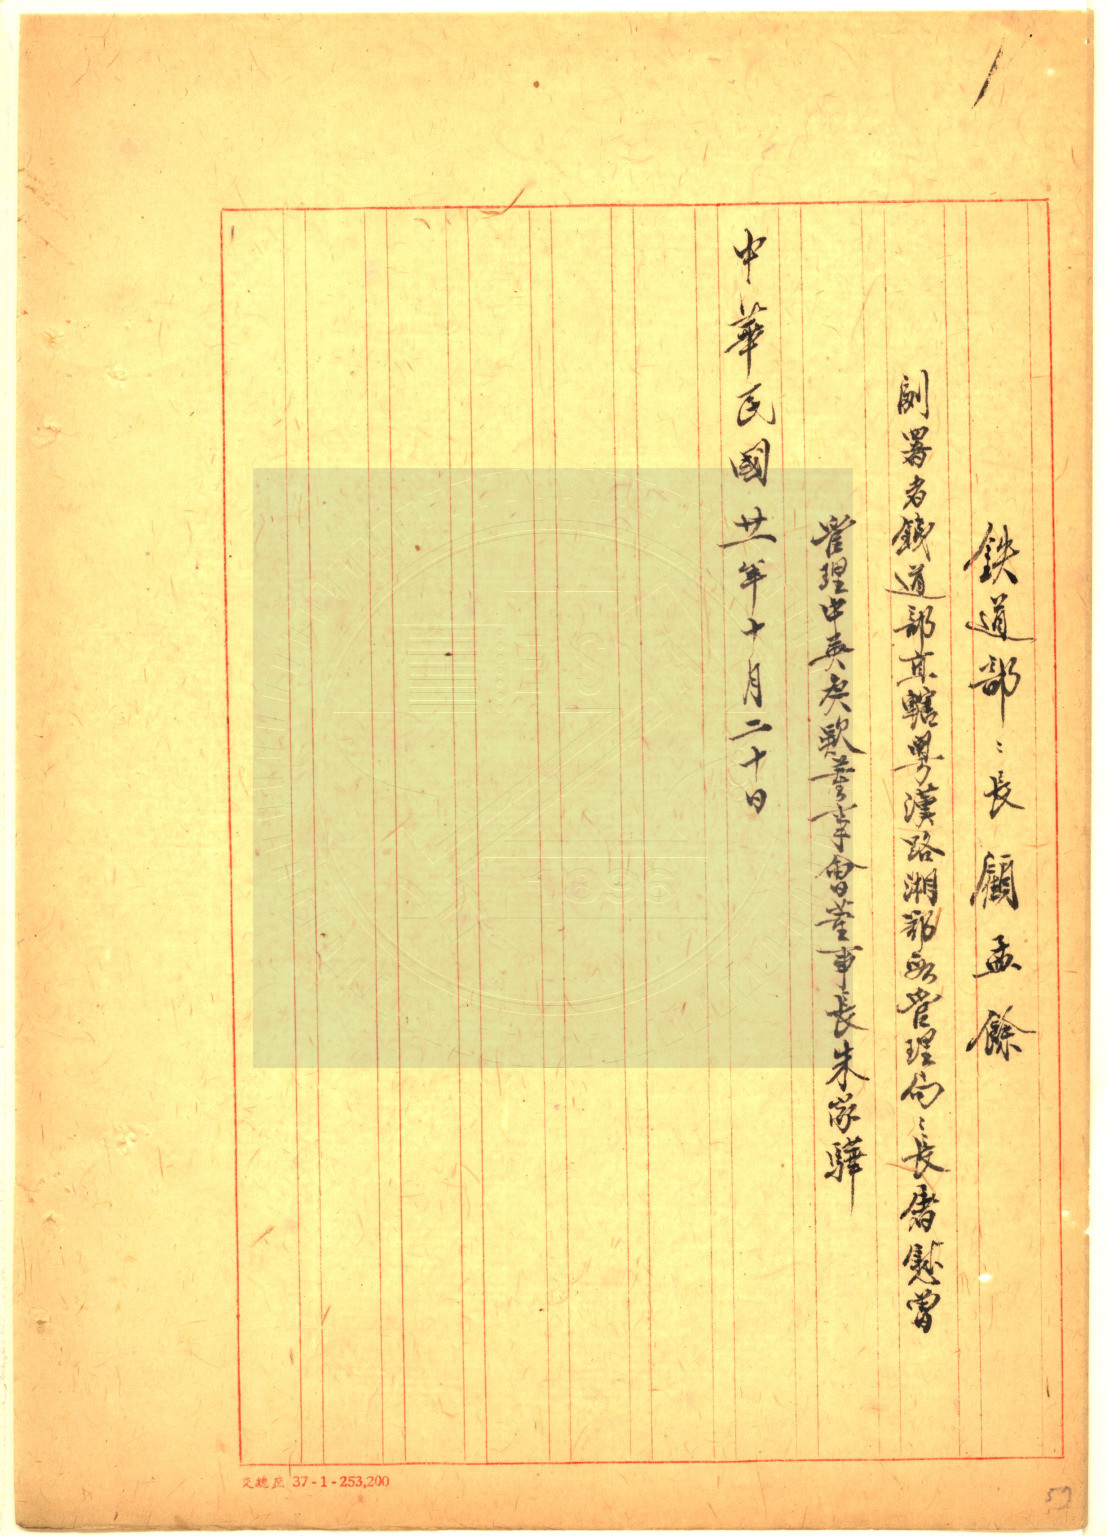 鉄道部〻長顧孟餘
副署者鐵道部直轄粵漢路湘鄂段管理局〻長
管理中英庚款董事會董事長朱家驊
中華民國廿一年十月二十日
37-1-253,200